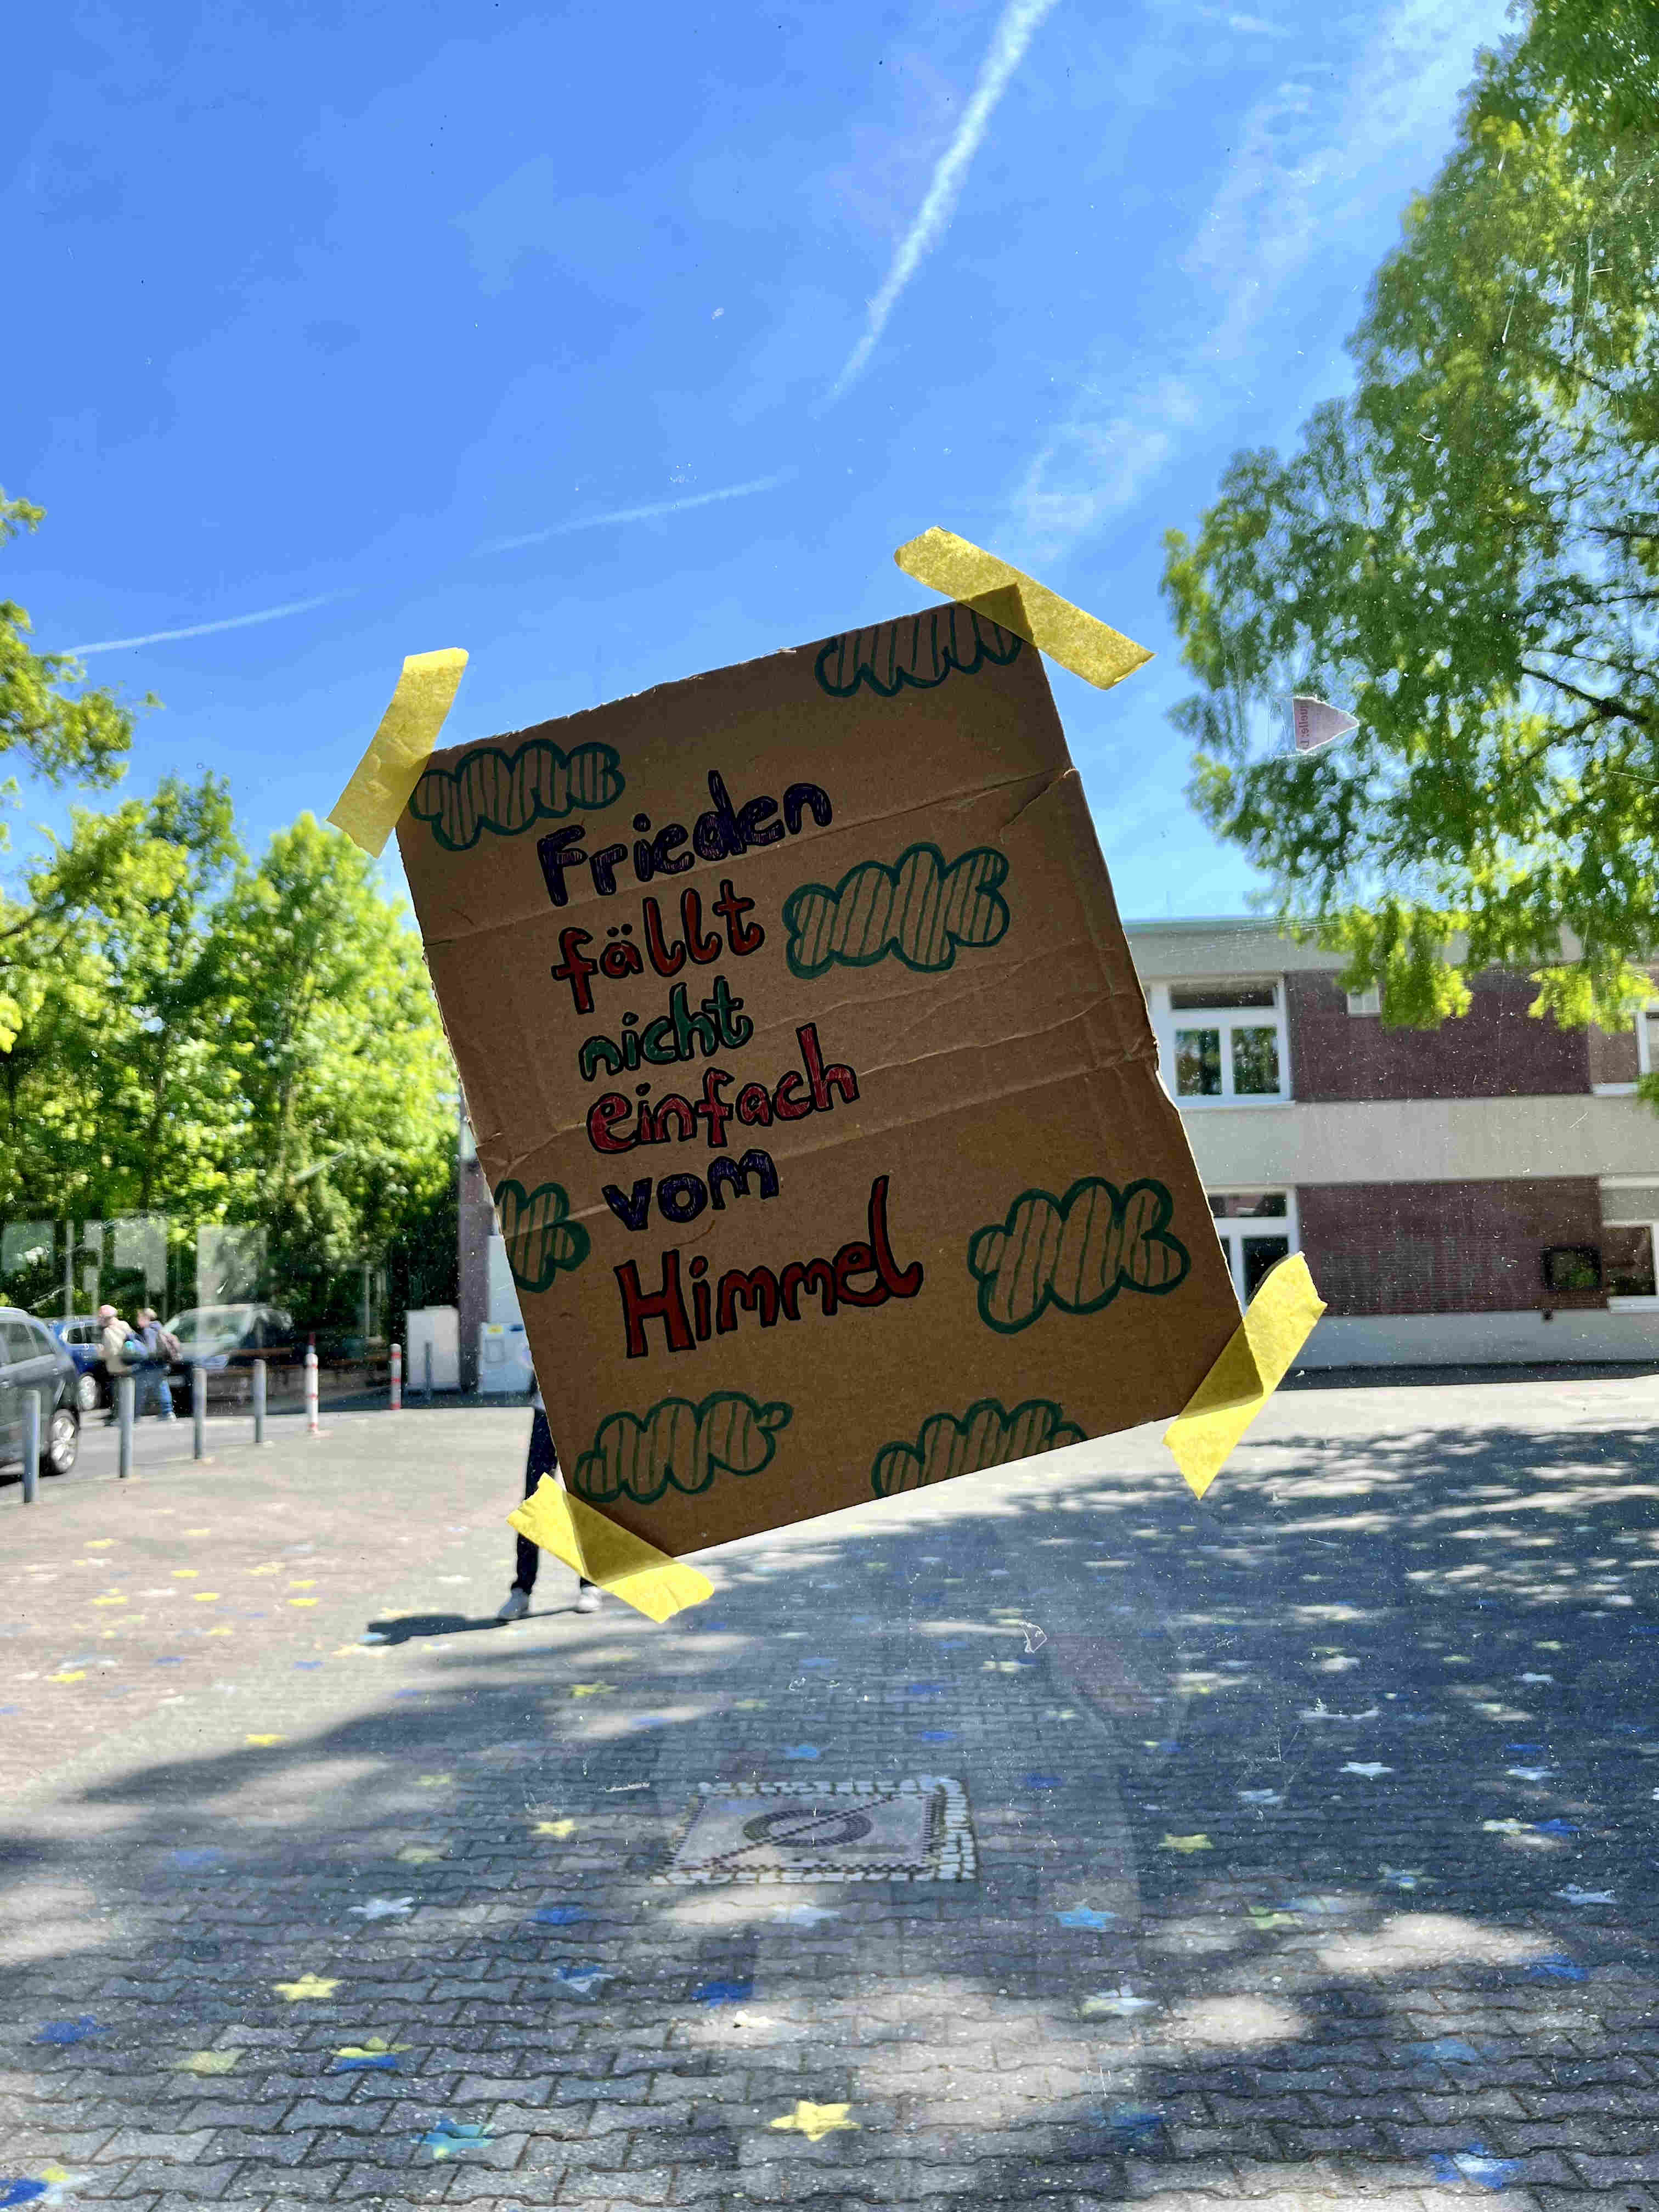 Frieden
fällt
nicht
einfach
vom
Himmel